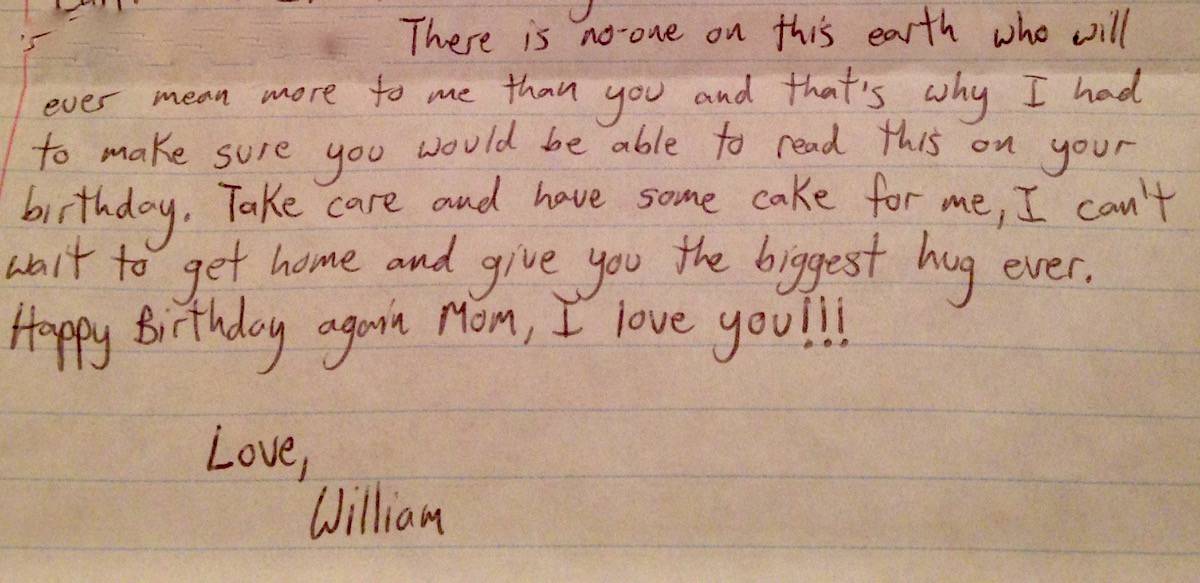 There is no-one on this earth who will
ever mean more to me than you and that's why I had
to make sure you would be able to read this on your
birthday. Take care and have some cake for me, I can't
wait to get home and give you the biggest hug ever.
Happy Birthday again Mom, I love you!!!
Love,
William